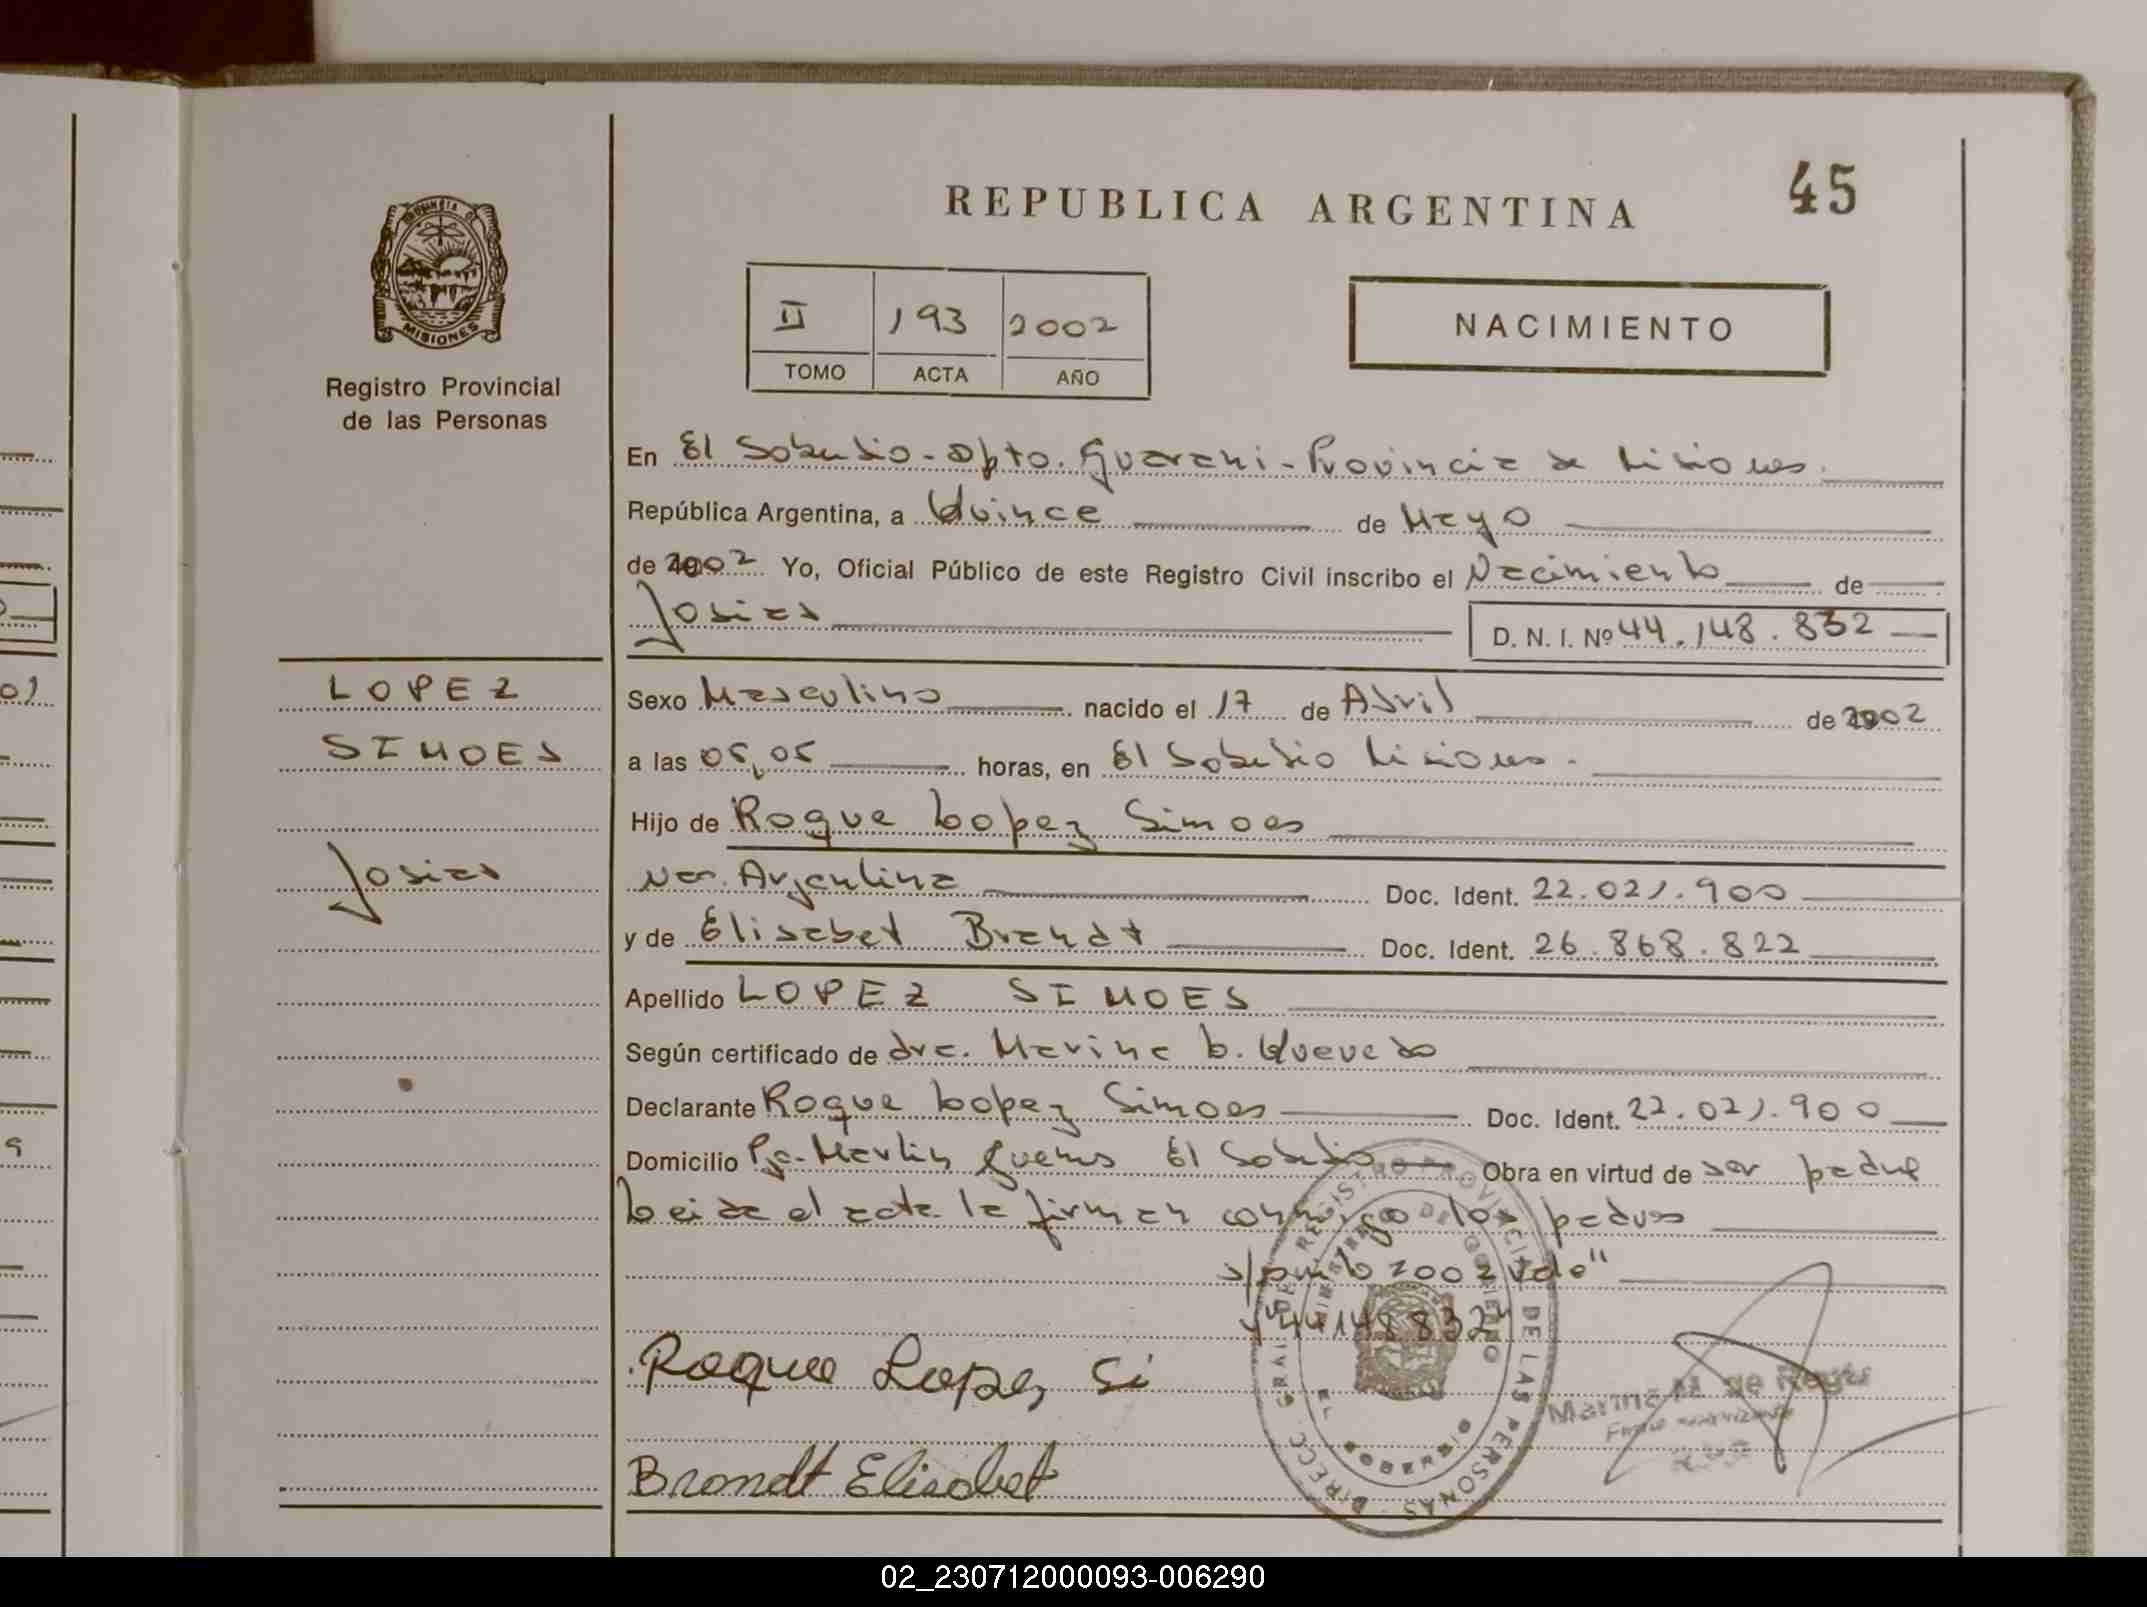 REPUBLICA ARGENTINA
45
PROVINCIA DE
MISIONES
Registro Provincial
de las Personas
II 193 2002
TOMO ACTA AÑO
NACIMIENTO
En El Soberbio - Dpto. Guarani - Provincia de Misiones.
República Argentina, a Quince de Mayo
de 2002 Yo, Oficial Público de este Registro Civil inscribo el Nacimiento de
Josias D. N. I. Nº 44.148.832
LOPEZ
SIMOES
Josias
Sexo Masculino nacido el 17 de Abril de 2002
a las 05,05 horas, en El Soberbio Misiones.
Hijo de Roque Lopez Simoes
Nac. Argentina Doc. Ident. 22.021.900
y de Elisabet Brandt Doc. Ident. 26.868.822
Apellido LOPEZ SIMOES
Según certificado de dra. Marina B. Quevedo
Declarante Roque Lopez Simoes Doc. Ident. 22.021.900
Domicilio Pje. Martin Guemes El Soberbio Obra en virtud de ser padre
Leida el acta la firman conmigo los padres
2002 vale"
"44148832"
Roque Lopez Si
Brandt Elisabet
DIRECC. GRAL. DE REGISTRO PROVINCIAL DE LAS PERSONAS
MINISTERIO DE GOBIERNO
EL SOBERBIO
Marina de
02_230712000093-006290